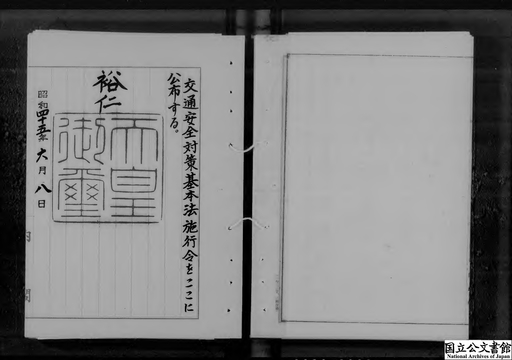 交通安全対策基本法施行令をここに
公布する。
裕仁
天皇
御璽
昭和四十五年六月八日
国立公文書館
National Archives of Japan